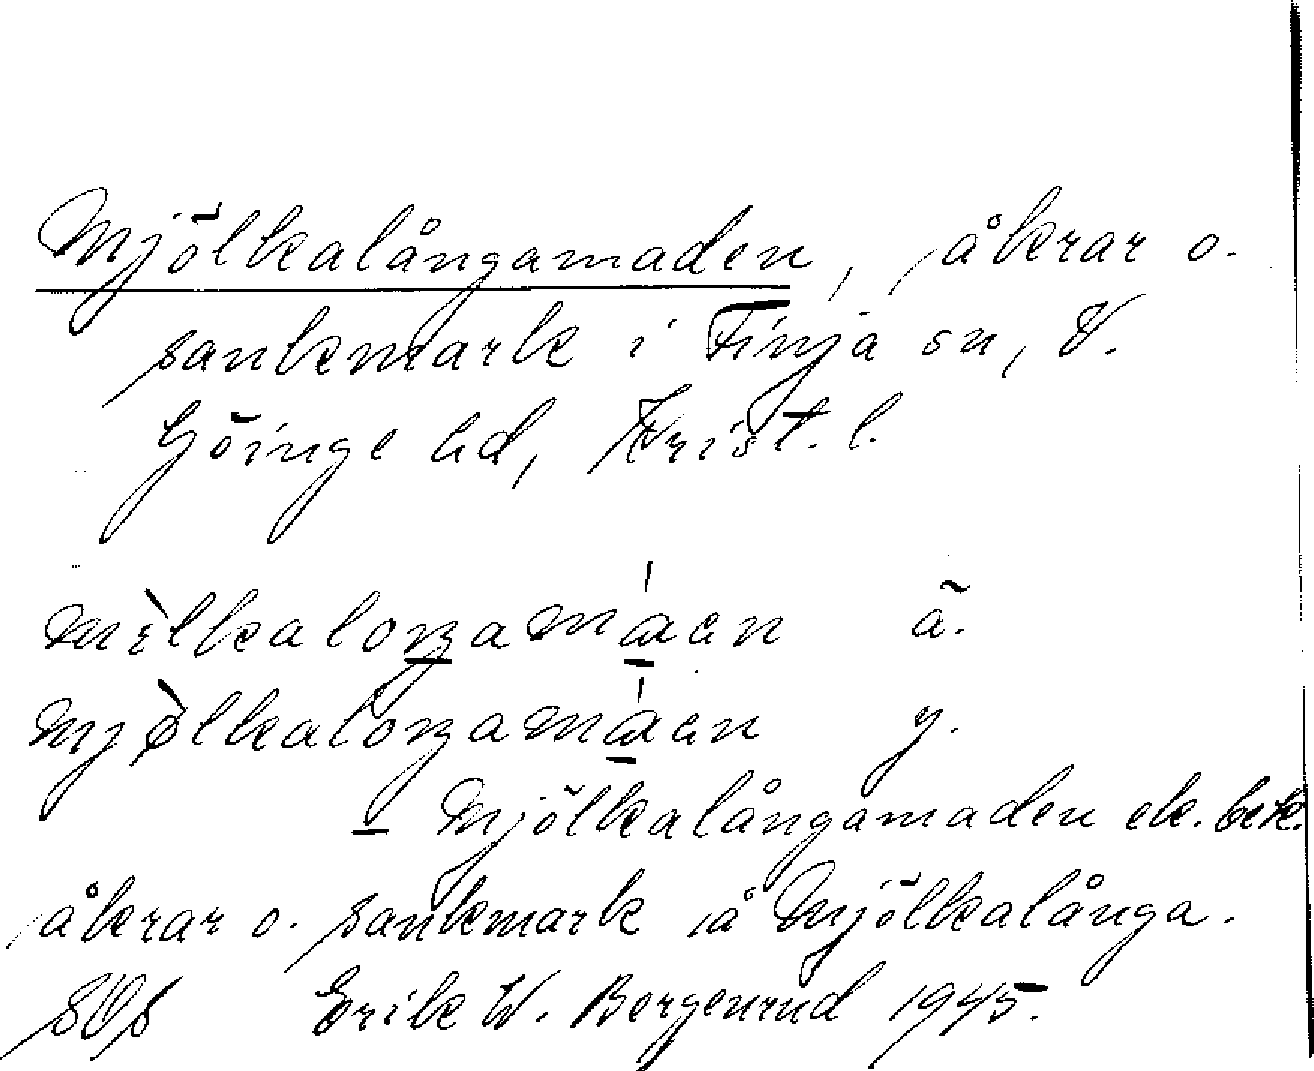 Mjölkalångamaden, åkrar o.
sankmark i Finja sn, V.
Göinge hd, Krist. l.
mèlkaloŋamáan ä.
mjølkaloŋamáan y.
– Mjölkalångamaden ek. bet.
åkrar o. sankmark å Mjölkalånga.
Erik W. Bergenrud 1945.